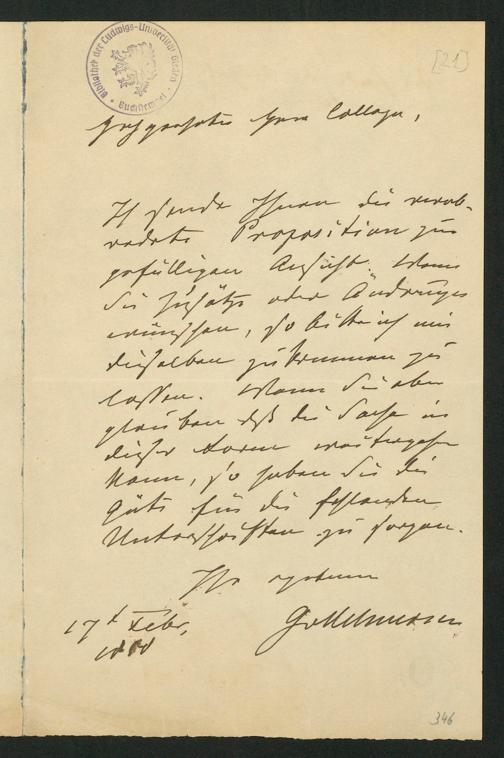 Bibliothek der Ludwigs-Universität Giessen
Buchstempel
[21]
Hochgeehrter Herr College,
Ich sende Ihnen die verab-
redete Proposition zur
gefälligen Ansicht. Wenn
Sie Zusätze oder Änderungen
wünschen, so bitte ich mir
dieselben zukommen zu
lassen. Wenn Sie aber
glauben daß die Sache in
dieser Form weitergehen
kann, so haben Sie die
Güte für die fehlenden
Unterschriften zu sorgen.
Ihr ergebener
17t Febr.
346